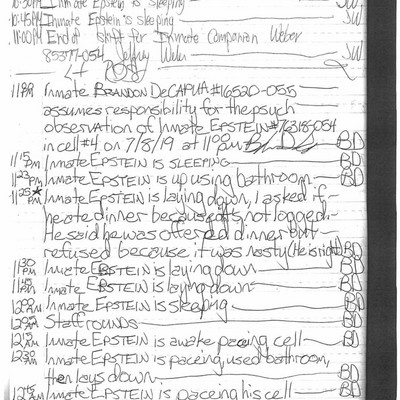 10:30PM Inmate Epstein is sleeping SW
10:45PM Inmate Epstein is sleeping SW
11:00PM End of shift for Inmate Companion Weber SW
85377-054 Jeffrey Weber
11:00PM Inmate BRANDON DeCAPUA #16520-055
assumes responsibility for the psych
observation of Inmate EPSTEIN #76318-054
in cell #4 on 7/8/19 at 11:00pm BD
11:15PM Inmate EPSTEIN is SLEEPING BD
11:23PM Inmate EPSTEIN is up using bathroom BD
11:25PM* Inmate EPSTEIN is laying down, I asked if
he ate dinner because it's not logged.
He said he was offered dinner but
refused because it was nasty (He is right) BD
11:30PM Inmate EPSTEIN is laying down BD
11:45PM Inmate EPSTEIN is laying down BD
12:00AM Inmate EPSTEIN is sleeping BD
Staff rounds BD
12:15AM Inmate EPSTEIN is awake pacing cell BD
12:30AM Inmate EPSTEIN is pacing, used bathroom,
then lays down. BD
12:45AM Inmate EPSTEIN is pacing his cell BD